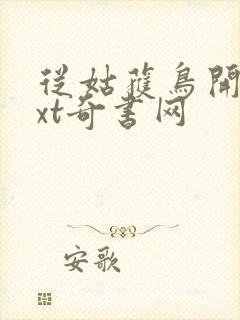 從姑蘓鳥開
xt奇書网
安歌